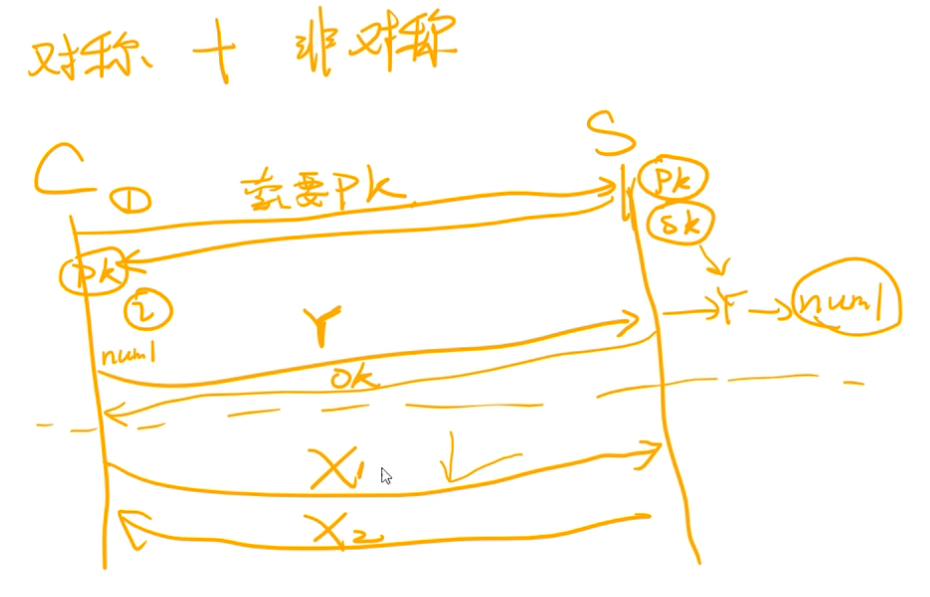 对称 + 非对称
C
S
①
索要pk
pk
sk
pk
②
Y
Y
num1
num1
ok
X1
X2